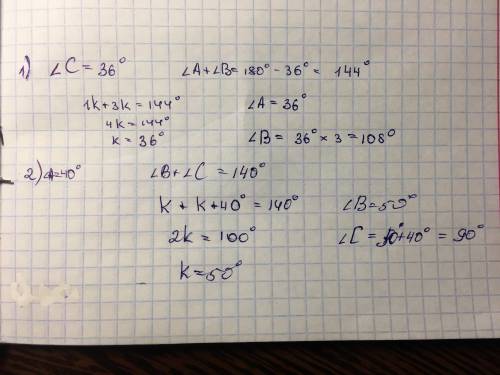 1) ∠C = 36° ∠A+∠B= 180° - 36° = 144°
1k+3k = 144° ∠A = 36°
4k = 144°
k = 36° ∠B = 36° × 3 = 108°
2) ∠A=40° ∠B+∠C = 140°
k + k+40° = 140° ∠B = 50°
2k = 100° ∠C = 50°+40° = 90°
k = 50°